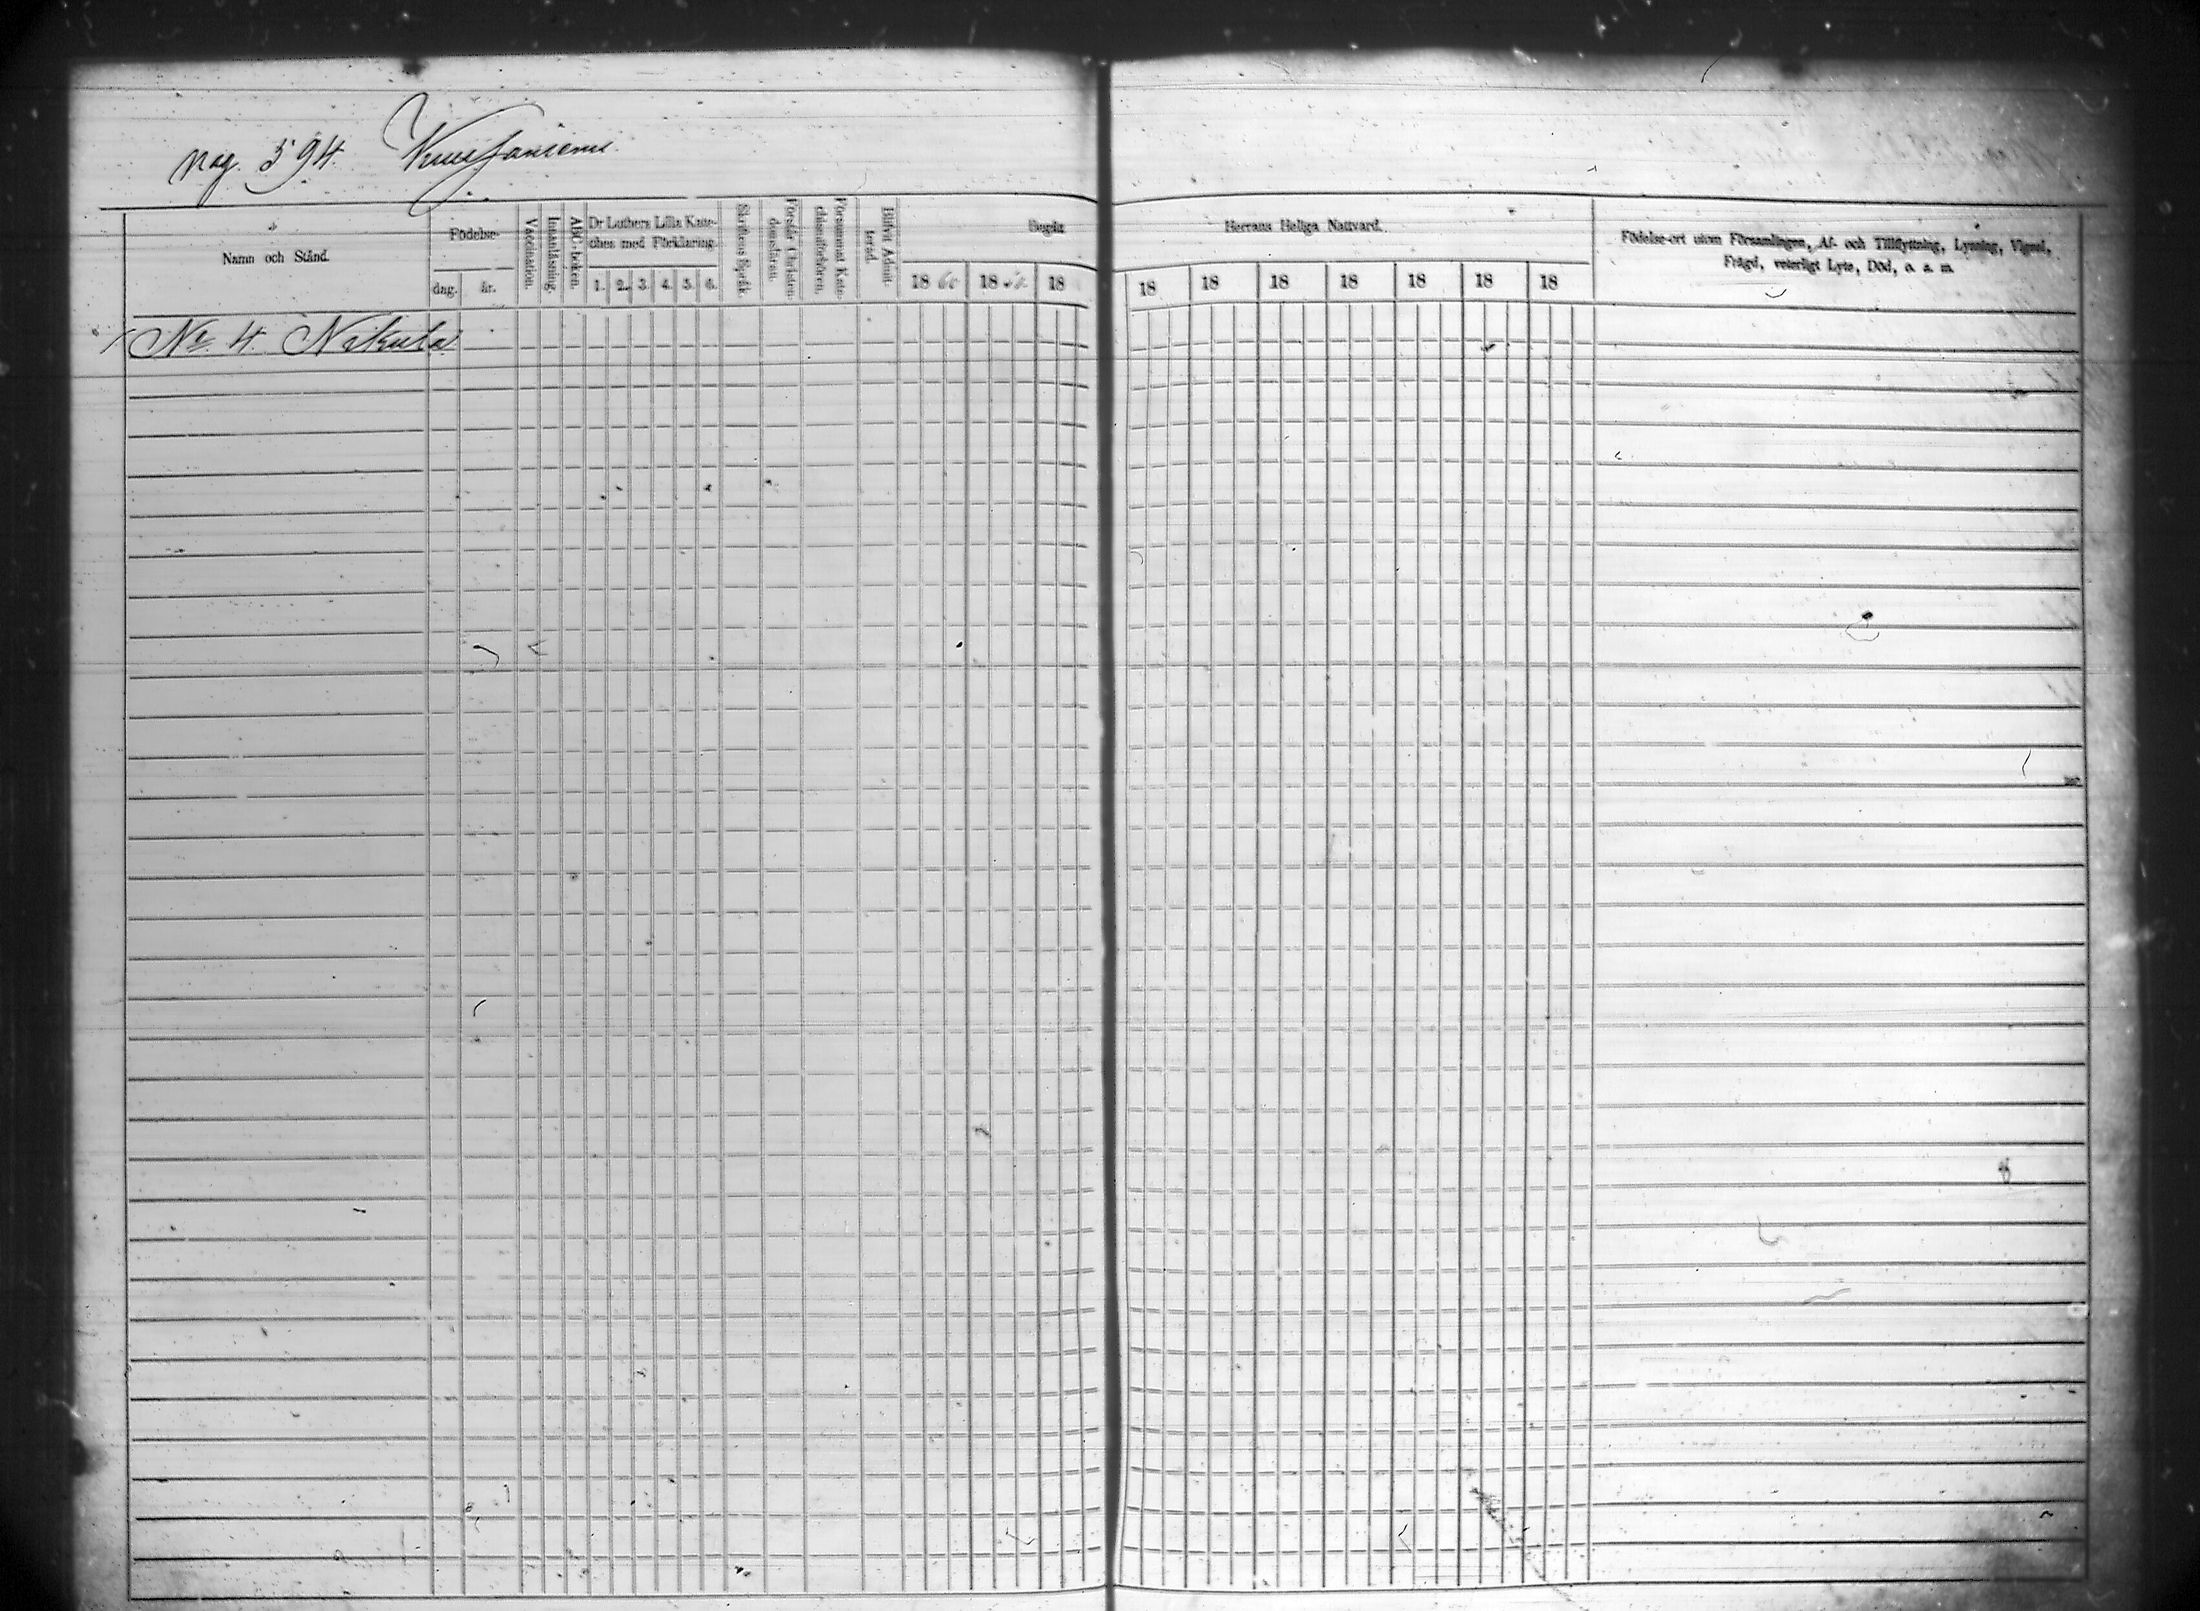 pag. 594. Kuusjoniemi
Namn och Stånd.
Födelse-
dag. år.
Vaccination.
Innanläsning.
ABC-boken.
Dr Luthers Lilla Kate-
ches med Förklaring.
1. 2. 3. 4. 5. 6.
Skriftens Språk.
Förstår Christen-
domsläran.
Försummat Kate-
chismiförhören.
Blifvit Admit-
terad.
Begått Herrans Heliga Nattvard.
18 60 18 18 18 18 18 18 18 18 18
Födelse-ort utom Församlingen, Af- och Tillflyttning, Lysning, Vigsel,
Frägd, veterligt Lyte, Död, o. s. m.
No. 4. Nikula